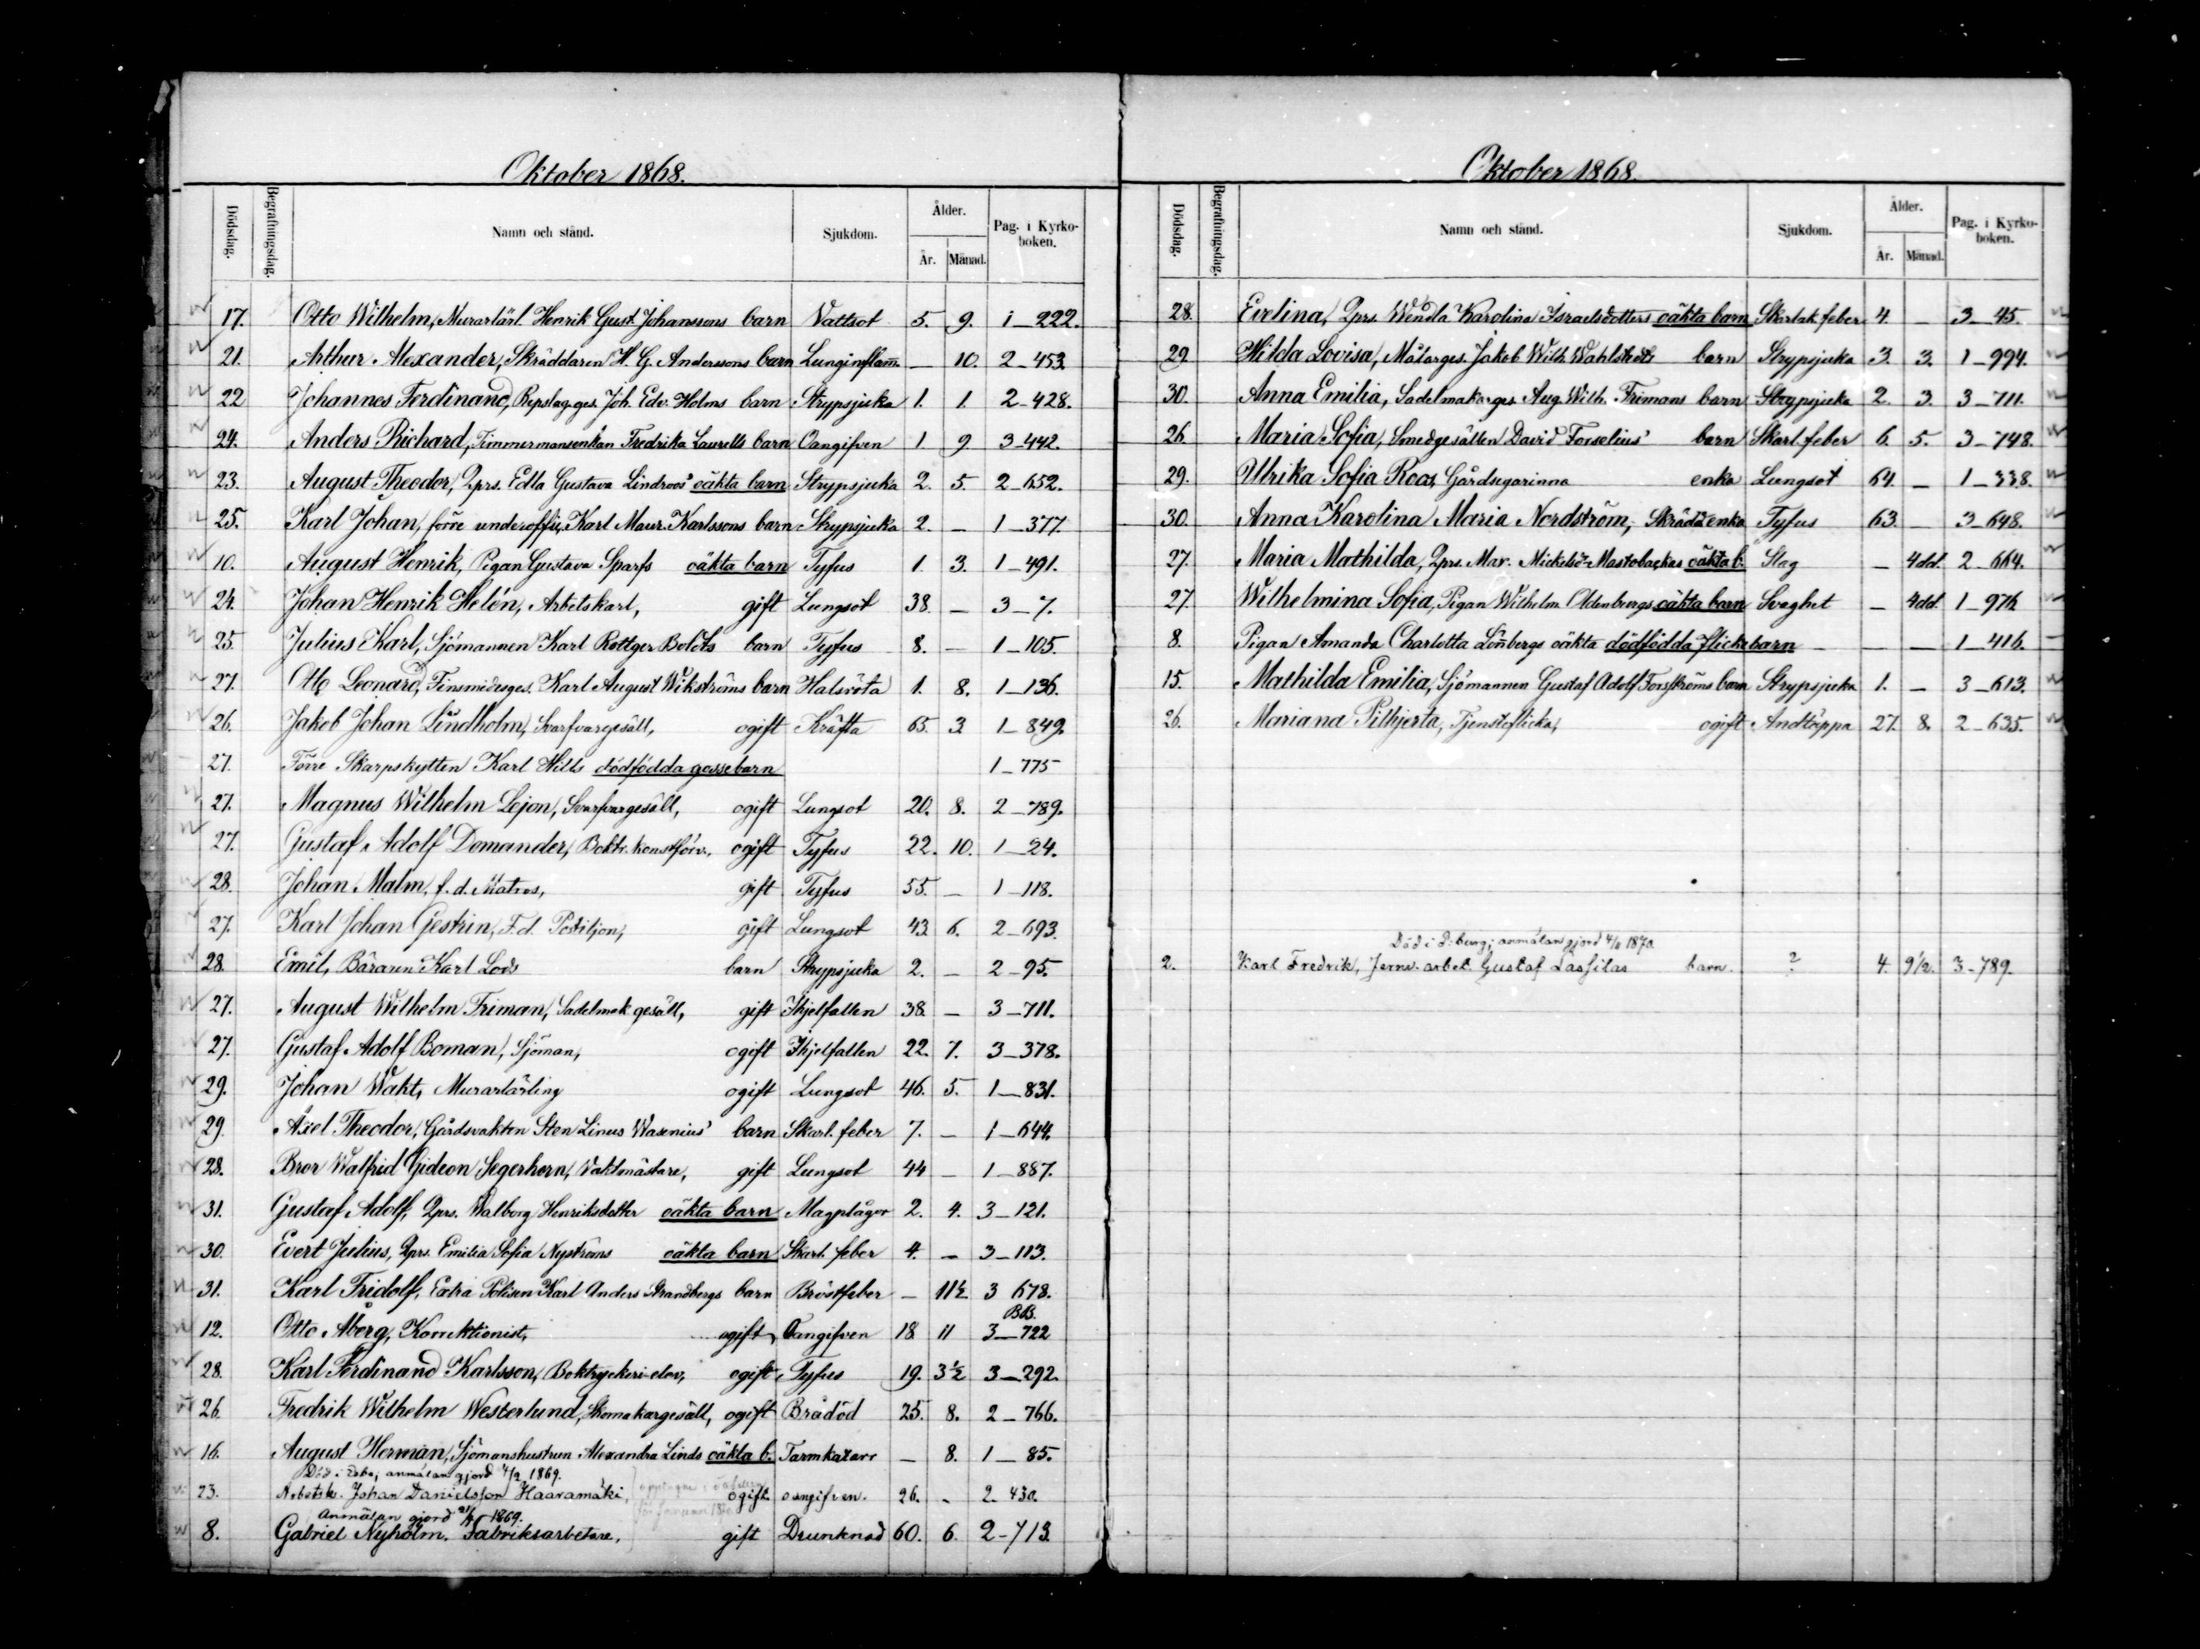 Oktober 1868.
Dödsdag. Begrafningsdag. Namn och stånd. Sjukdom. Ålder. År. Månad. Pag. i Kyrko-boken.
17. Otto Wilhelm, Murarlärl. Henrik Gust Johanssons barn Vattsot 5. 9. 1_222.
21. Arthur Alexander, Skräddaren H. G. Anderssons barn Lunginflam. _ 10. 2_453.
22 Johannes Ferdinand, Repslag.ges. Joh. Edv. Holms barn Strypsjuka 1. 1. 2_428.
24. Anders Richard, Timmermansenkan Fredrika Laurells barn Oangifven 1. 9. 3_442.
23. August Theodor, Qprs. Edla Gustava Lindroos' oäkta barn Strypsjuka 2. 5. 2_652.
25. Karl Johan, förre underoffi. Karl Maur. Karlssons barn Strypsjuka 2. _ 1_377.
10. August Henrik, Pigan Gustava Sparfs oäkta barn Tyfus 1. 3. 1_491.
24. Johan Henrik Helén, Arbetskarl, gift Lungsot 38. _ 3_7.
25. Julius Karl, Sjömannen Karl Rottger Boldts barn Tyfus 8. _ 1_105.
27. Otto Leonard, Finsmidesges. Karl August Wikströms barn Halsröta 1. 8. 1_136.
26. Jakob Johan Lindholm, Svarfvaregesäll, ogift Kräfta 65. 3. 1_849.
27. Förre Skarpskytten Karl Hills dödfödda gossebarn 1_775
27. Magnus Wilhelm Lejon, Svarfvargesäll, ogift Lungsot 20. 8. 2_789.
27. Gustaf Adolf Domander, Boktr. konstförv., ogift Tyfus 22. 10. 1_24.
28. Johan Malm, f. d. Matros, gift Tyfus 55. _ 1_118.
27. Karl Johan Gestrin, F.d. Postiljon, gift Lungsot 43 6. 2_693.
28. Emil, Bäraren Karl Lods barn Strypsjuka 2. _ 2_95.
27. August Wilhelm Friman, Sadelmak gesäll, gift Ihjelfallen 38. _ 3_711.
27. Gustaf Adolf Boman, Sjöman, ogift Ihjelfallen 22. 7. 3_378.
29. Johan Wakt, Murarlärling ogift Lungsot 46. 5. 1_831.
29. Axel Theodor, Gårdsvakten Sten Linus Wasenius' barn Skarl. feber 7. _ 1_644.
28. Bror Walfrid Gideon Segerhorn, Vaktmästare, gift Lungsot 44 _ 1_887.
31. Gustaf Adolf, Qprs. Walborg Henriksdotter oäkta barn Magplågor 2. 4. 3_121.
30. Evert Julius, Qprs. Emilia Sofia Nyströms oäkta barn Skarl. feber 4. _ 3_113.
31. Karl Fridolf, Extra Polisen Karl Anders Strandbergs barn Bröstfeber _ 11½ 3 678.
BB.
12. Otto Åberg, Korrektionist, ogift, Oangifven 18 11 3_722
28. Karl Ferdinand Karlsson, Boktryckeri-elev, ogift Tyfus 19. 3½ 3_292.
26. Fredrik Wilhelm Westerlund, Skomakargesäll, ogift Brådöd 25. 8. 2_766.
16. August Herman, Sjömanshustrun Alexandra Linds oäkta b. Tarmkatarr _ 8. 1_85.
anmälan gjord 4/2 1869.
23. Arbetsk. Johan Danielsson Haaramäki, ogift oangifven. 26. - 2. 430.
Anmälan gjord 1869.
8. Gabriel Nyholm. Fabriksarbetare, gift Drunknad 60. 6. 2-713.
Oktober 1868.
Dödsdag. Begrafningsdag. Namn och stånd. Sjukdom. Ålder. År. Månad. Pag. i Kyrko-boken.
28. Evelina, Qprs. Wendla Karolina Israelsdotters oäkta barn Skarlak. feber 4. _ 3_45.
29. Hilda Lovisa, Målarges. Jakob Wilh. Wahlstedts barn Strypsjuka 3. 3. 1_994.
30. Anna Emilia, Sadelmakarges. Aug. Wilh. Frimans barn Strypsjuka 2. 3. 3_711.
26. Maria Sofia, Smedgesällen David Forselius' barn Skarl. feber 6. 5. 3_748.
29. Ulrika Sofia Roos, Gårdsegarinna enka Lungsot 64. _ 1_338.
30. Anna Karolina Maria Nordström, Skrädd.enka Tyfus 63. _ 3_648.
27. Maria Mathilda, Qprs. Mar. Mickelsd:r Mastobackas oäkta b. Slag _ 4dd. 2_664.
27. Wilhelmina Sofia, Pigan Wilhelm. Oldenbergs oäkta barn Svaghet _ 4dd. 1_976.
8. Pigan Amanda Charlotta Lönnbergs oäkta dödfödda flickebarn _ _ _ 1_416.
15. Mathilda Emilia, Sjömannen Gustaf Adolf Forsströms barn Strypsjuka 1. _ 3_613.
26. Mariana Pilhjerta, Tjensteflicka, ogift Andtäppa 27. 8. 2_635.
Död i anmälan gjord 1870.
2. Karl Fredrik, Jernv. arbet. Gustaf Lassilas barn. ? 4. 9½. 3_789.